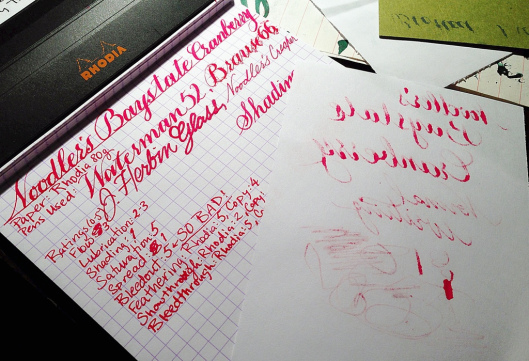 RHODIA
Noodler's Baystate Cranberry
Paper: Rhodia 80g
Pens Used: Waterman 52, Brause 66,
J. Herbin Glass, Noodler's
Ratings/05
Flow: 3
Lubrication: 2-3
Shading: 1
Saturation: 5
Spread:
SO BAD!
Feathering: Rhodia: 5, Copy: 4
Showthrough: Rhodia: 2, Copy
Bleedthrough: Rhodia: 5, Copy
Noodler's
Baystate
Cranberry
Normal
Writing